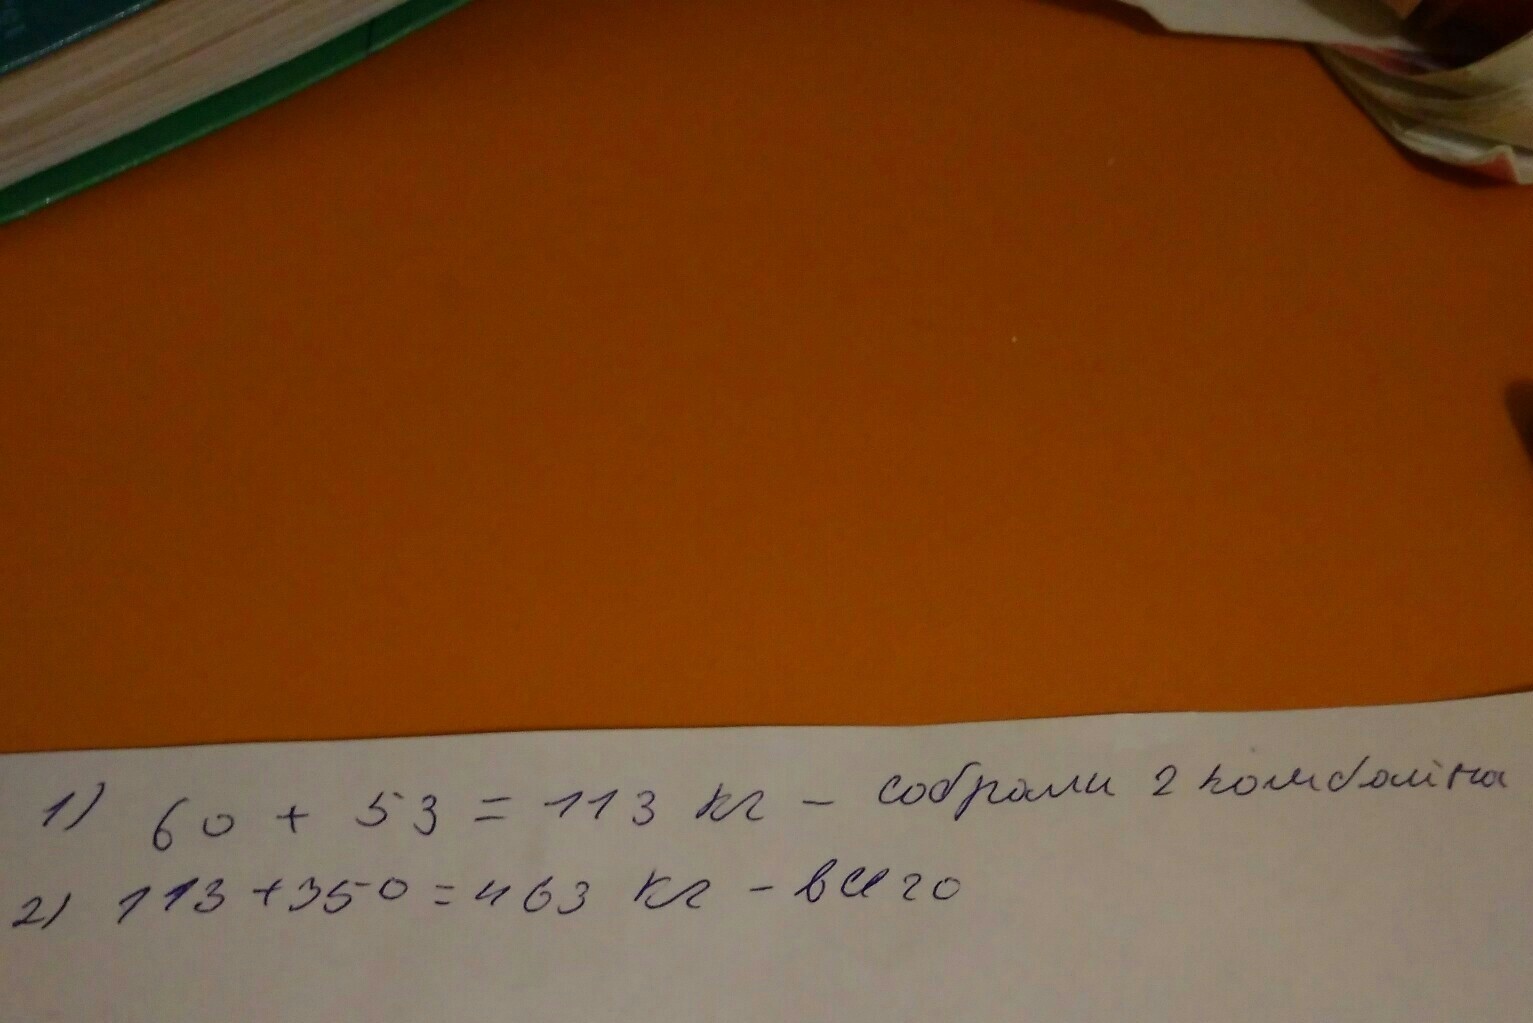 1) 60 + 53 = 113 кг - собрали 2 комбайна
2) 113 + 350 = 463 кг - всего